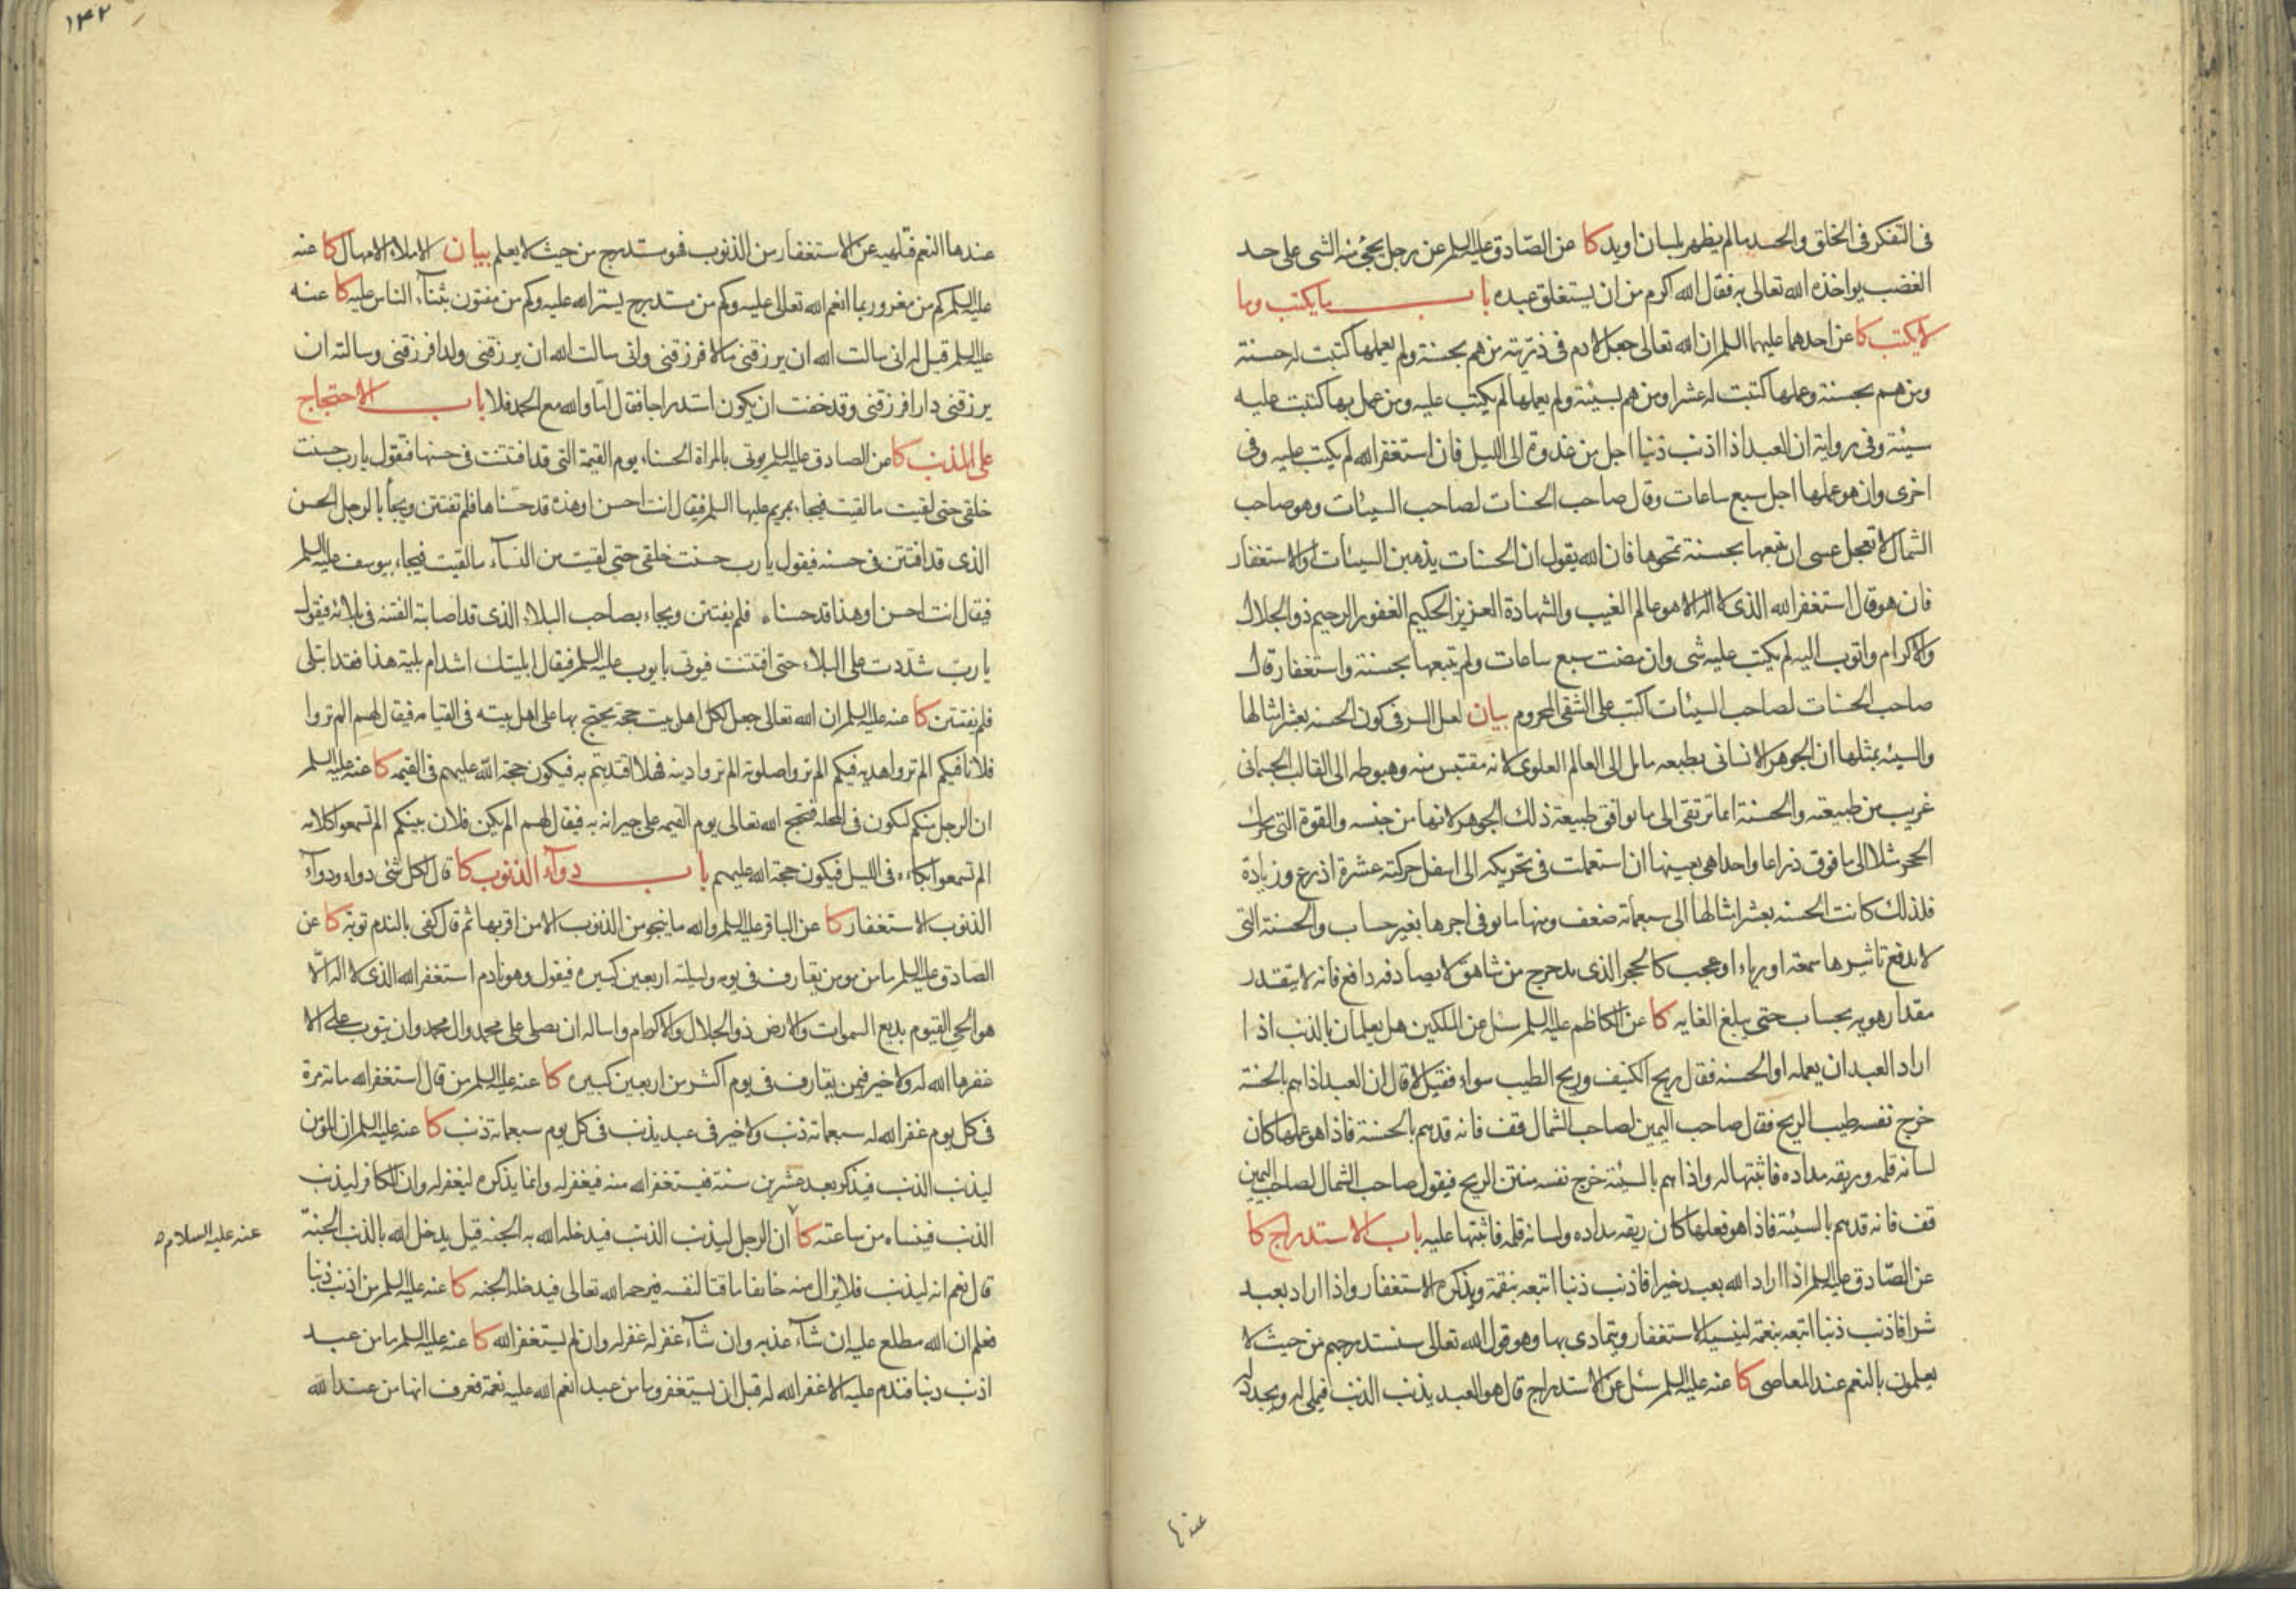 فى التفكر فى الخلق والحسد ما لم يظهر بلسان او يد كا عن الصّادق عليه السلم عن رجل يجئ منه الشى على حد
الغضب يواخذه الله تعالى به فقال الله اكرم من ان يستغلق عبده باب ما يكتب وما
لا يكتب كا عن احدهما عليهما السلم ان الله تعالى جعل لادم فى ذريته من هم بحسنة ولم يعملها كتبت له حسنة
ومن هم بحسنة وعملها كتبت له عشرا ومن هم بسيئة ولم يعملها لم يكتب عليه ومن عمل بها كتبت عليه
سيئة وفى رواية ان العبد اذا اذنب ذنبا اجل من غدوة الى الليل فان استغفر الله لم يكتب عليه وفى
اخرى وان هو عملها اجل سبع ساعات وقال صاحب الحسنات لصاحب السيئات وهو صاحب
الشمال لا تعجل عسى ان يتبعها بحسنة تمحوها فان الله يقول ان الحسنات يذهبن السيئات او الاستغفار
فان هو قال استغفر الله الذى لا اله الا هو عالم الغيب والشهادة العزيز الحكيم الغفور الرحيم ذو الجلال
والاكرام واتوب اليه لم يكتب عليه شى وان مضت سبع ساعات ولم يتبعها بحسنة واستغفار قال
صاحب الحسنات لصاحب السيئات اكتب على الشقى المحروم بيان لعل السر فى كون الحسنه بعشر امثالها
والسيئه بمثلها ان الجوهر الانسانى بطبعه مايل الى العالم العلوى لانه مقتبس منه وهبوطه الى القالب الجسمانى
غريب من طبيعته والحسنة انما ترتقى الى ما يوافق طبيعة ذلك الجوهر لانها من جنسه والقوة التى تحرك
الحجر مثلا الى ما فوق ذراعا واحدا هى بعينها ان استعملت فى تحريكه الى اسفل حركته عشرة اذرع وزيادة
فلذلك كانت الحسنه بعشر امثالها الى سبعمائة ضعف ومنها ما يوفى اجرها بغير حساب والحسنة التى
لا يدفع تاثيرها سمعة او رياء او عجب كالحجر الذى يدحرج من شاهق لا يصادفه دافع فانه لا يتقدر
مقدار هويه بحساب حتى يبلغ الغايه كا عن الكاظم عليه السلم سئل عن الملكين هل يعلمان بالذنب اذا
اراد العبد ان يعمله او الحسنه فقال ريح الكنيف وريح الطيب سواء فقيل لا قال ان العبد اذا هم بالحسنة
خرج نفسه طيب الريح فقال صاحب اليمين لصاحب الشمال قف فانه قد هم بالحسنة فاذا هو عملها كان
لسانه قلمه وريقه مداده فاثبتها له واذا هم بالسيئة خرج نفسه منتن الريح فيقول صاحب الشمال لصاحب اليمين
قف فانه قد هم بالسيئة فاذا هو فعلها كان ريقه مداده ولسانه قلمه فاثبتها عليه باب الاستدراج كا
عن الصّادق عليه السلم اذا اراد الله بعبد خيرا فاذنب ذنبا اتبعه بنقمة ويذكره الاستغفار واذا اراد بعبد
شرا فاذنب ذنبا اتبعه بنعمة لينسيه الاستغفار ويتمادى بها وهو قول الله تعالى سنستدرجهم من حيث لا
يعلمون بالنعم عند المعاصى كا عنه عليه السلم سئل عن الاستدراج قال هو العبد يذنب الذنب فيملى له ويجدد له
عندها
١٤٢
عندها النعم فتلهيه عن الاستغفار من الذنوب فهو مستدرج من حيث لا يعلم بيان الاملاء الامهال كا عنه
عليه السلم كم من مغرور بما انعم الله تعالى عليه وكم من مستدرج يستر الله عليه وكم من مفتون بثناء الناس عليه كا عنه
عليه السلم قيل له انى سالت الله ان يرزقنى مالا فرزقنى وانى سالت الله ان يرزقنى ولدا فرزقنى وسالته ان
يرزقنى دارا فرزقنى وقد خفت ان يكون استدراجا فقال اما والله مع الحمد فلا باب الاحتجاج
على المذنب كا عن الصادق عليه السلم يوتى بالمراة الحسناء يوم القيمة التى قد افتتنت فى حسنها فتقول يا رب حسنت
خلقى حتى لقيت ما لقيت فيجاء بمريم عليها السلم فيقال انت احسن او هذه قد حسناها فلم تفتتن ويجاء بالرجل الحسن
الذى قد افتتن فى حسنه فيقول يا رب حسنت خلقى حتى لقيت من النساء ما لقيت فيجاء بيوسف عليه السلم
فيقال انت احسن او هذا قد حسناه فلم يفتتن ويجاء بصاحب البلاء الذى قد اصابته الفتنه فى بلائه فيقول
يا رب شددت على البلاء حتى افتتنت فيوتى بايوب عليه السلم فيقال ابليتك اشد ام بلية هذا فقد ابتلى
فلم يفتتن كا عنه عليه السلم ان الله تعالى جعل لكل اهل بيت حجة يحتج بها على اهل بيته فى القيامه فيقال لهم الم تروا
فلانا فيكم الم تروا هديه فيكم الم تروا صلوته الم تروا دينه فهلا اقتديتم به فيكون حجة الله عليهم فى القيمه كا عنه عليه السلم
ان الرجل منكم ليكون فى المحله فيحتج الله تعالى يوم القيمه على جيرانه به فيقال لهم الم يكن فلان بينكم الم تسمعوا كلامه
الم تسمعوا بكاءه فى الليل فيكون حجة الله عليهم باب دواء الذنوب كا قال لكل شئ دواء ودواء
الذنوب الاستغفار كا عن الباقر عليه السلم والله ما ينجو من الذنوب الا من اقر بها ثم قال كفى بالندم توبة كا عن
الصادق عليه السلم ما من مومن يقارف فى يومه وليلته اربعين كبيره فيقول وهو نادم استغفر الله الذى لا اله الّا
هو الحى القيوم بديع السموات والارض ذو الجلال والاكرام واساله ان يصلى على محمد وال محمد وان يتوب على الا
غفرها الله له ولا خير فيمن يقارف فى يوم اكثر من اربعين كبيره كا عنه عليه السلم من قال استغفر الله مائة مرة
فى كل يوم غفر الله له سبعمائة ذنب ولا خير فى عبد يذنب فى كل يوم سبعمائة ذنب كا عنه عليه السلم ان المؤمن
ليذنب الذنب فيذكر بعد عشرين سنة فيستغفر الله منه فيغفر له وانما يذكره ليغفر له وان الكافر ليذنب
الذنب فينساه من ساعته كا ان الرجل ليذنب الذنب فيدخله الله به الجنه قيل يدخل الله بالذنب الجنة
عنه عليه السلام
قال نعم انه ليذنب فلا يزال منه خايفا ماقتا لنفسه فيرحمه الله تعالى فيدخله الجنه كا عنه عليه السلم من اذنب ذنبا
فعلم ان الله مطلع عليه ان شاء عذبه وان شاء غفر له غفر له وان لم يستغفر الله كا عنه عليه السلم ما من عبد
اذنب ذنبا فندم عليه الا غفر الله له قبل ان يستغفر وما من عبد انعم الله عليه نعمة فعرف انها من عند الله